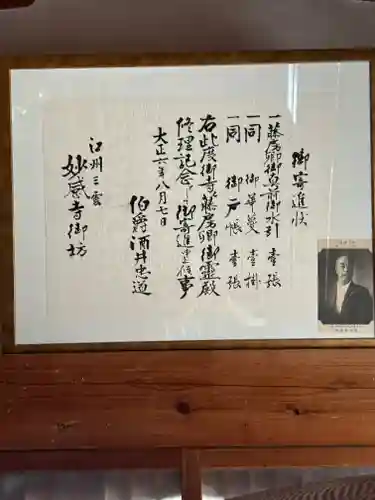 御寄進状
一藤房卿御宝前御水引 壹張
一同 御華蔓 壹掛
一同 御戸帳 壹張
右此度御寺藤房卿御霊殿
修理記念ニ御寄進申上候事
大正六年八月七日
伯爵酒井忠道
江州三雲
妙感寺御坊